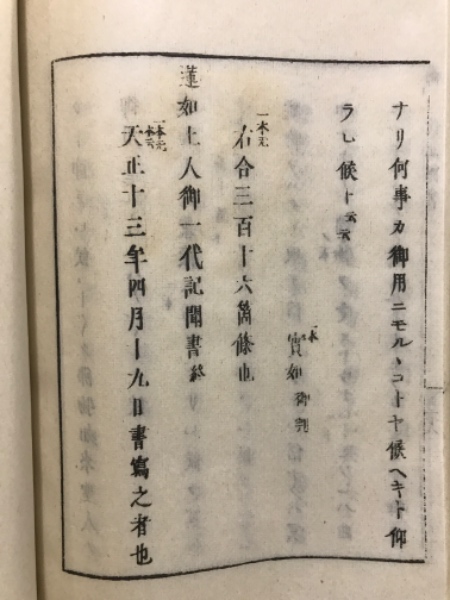 ナリ何事カ御用ニモルヽコトヤ候ヘキト仰
ラレ候ト云云
實如御判
一本無
右合三百十六箇條也
蓮如上人御一代記聞書終
天正十三年四月十九日書寫之者也